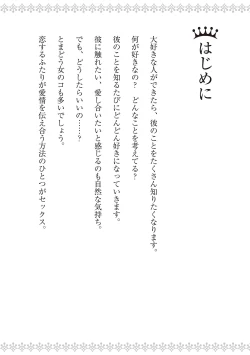 はじめに
大好きな人ができたら、彼のことをたくさん知りたくなります。
何が好きなの？　どんなことを考えてる？
彼のことを知るたびにどんどん好きになっていきます。
彼に触れたい、愛し合いたいと感じるのも自然な気持ち。
でも、どうしたらいいの……？
とまどう女のコも多いでしょう。
恋するふたりが愛情を伝え合う方法のひとつがセックス。